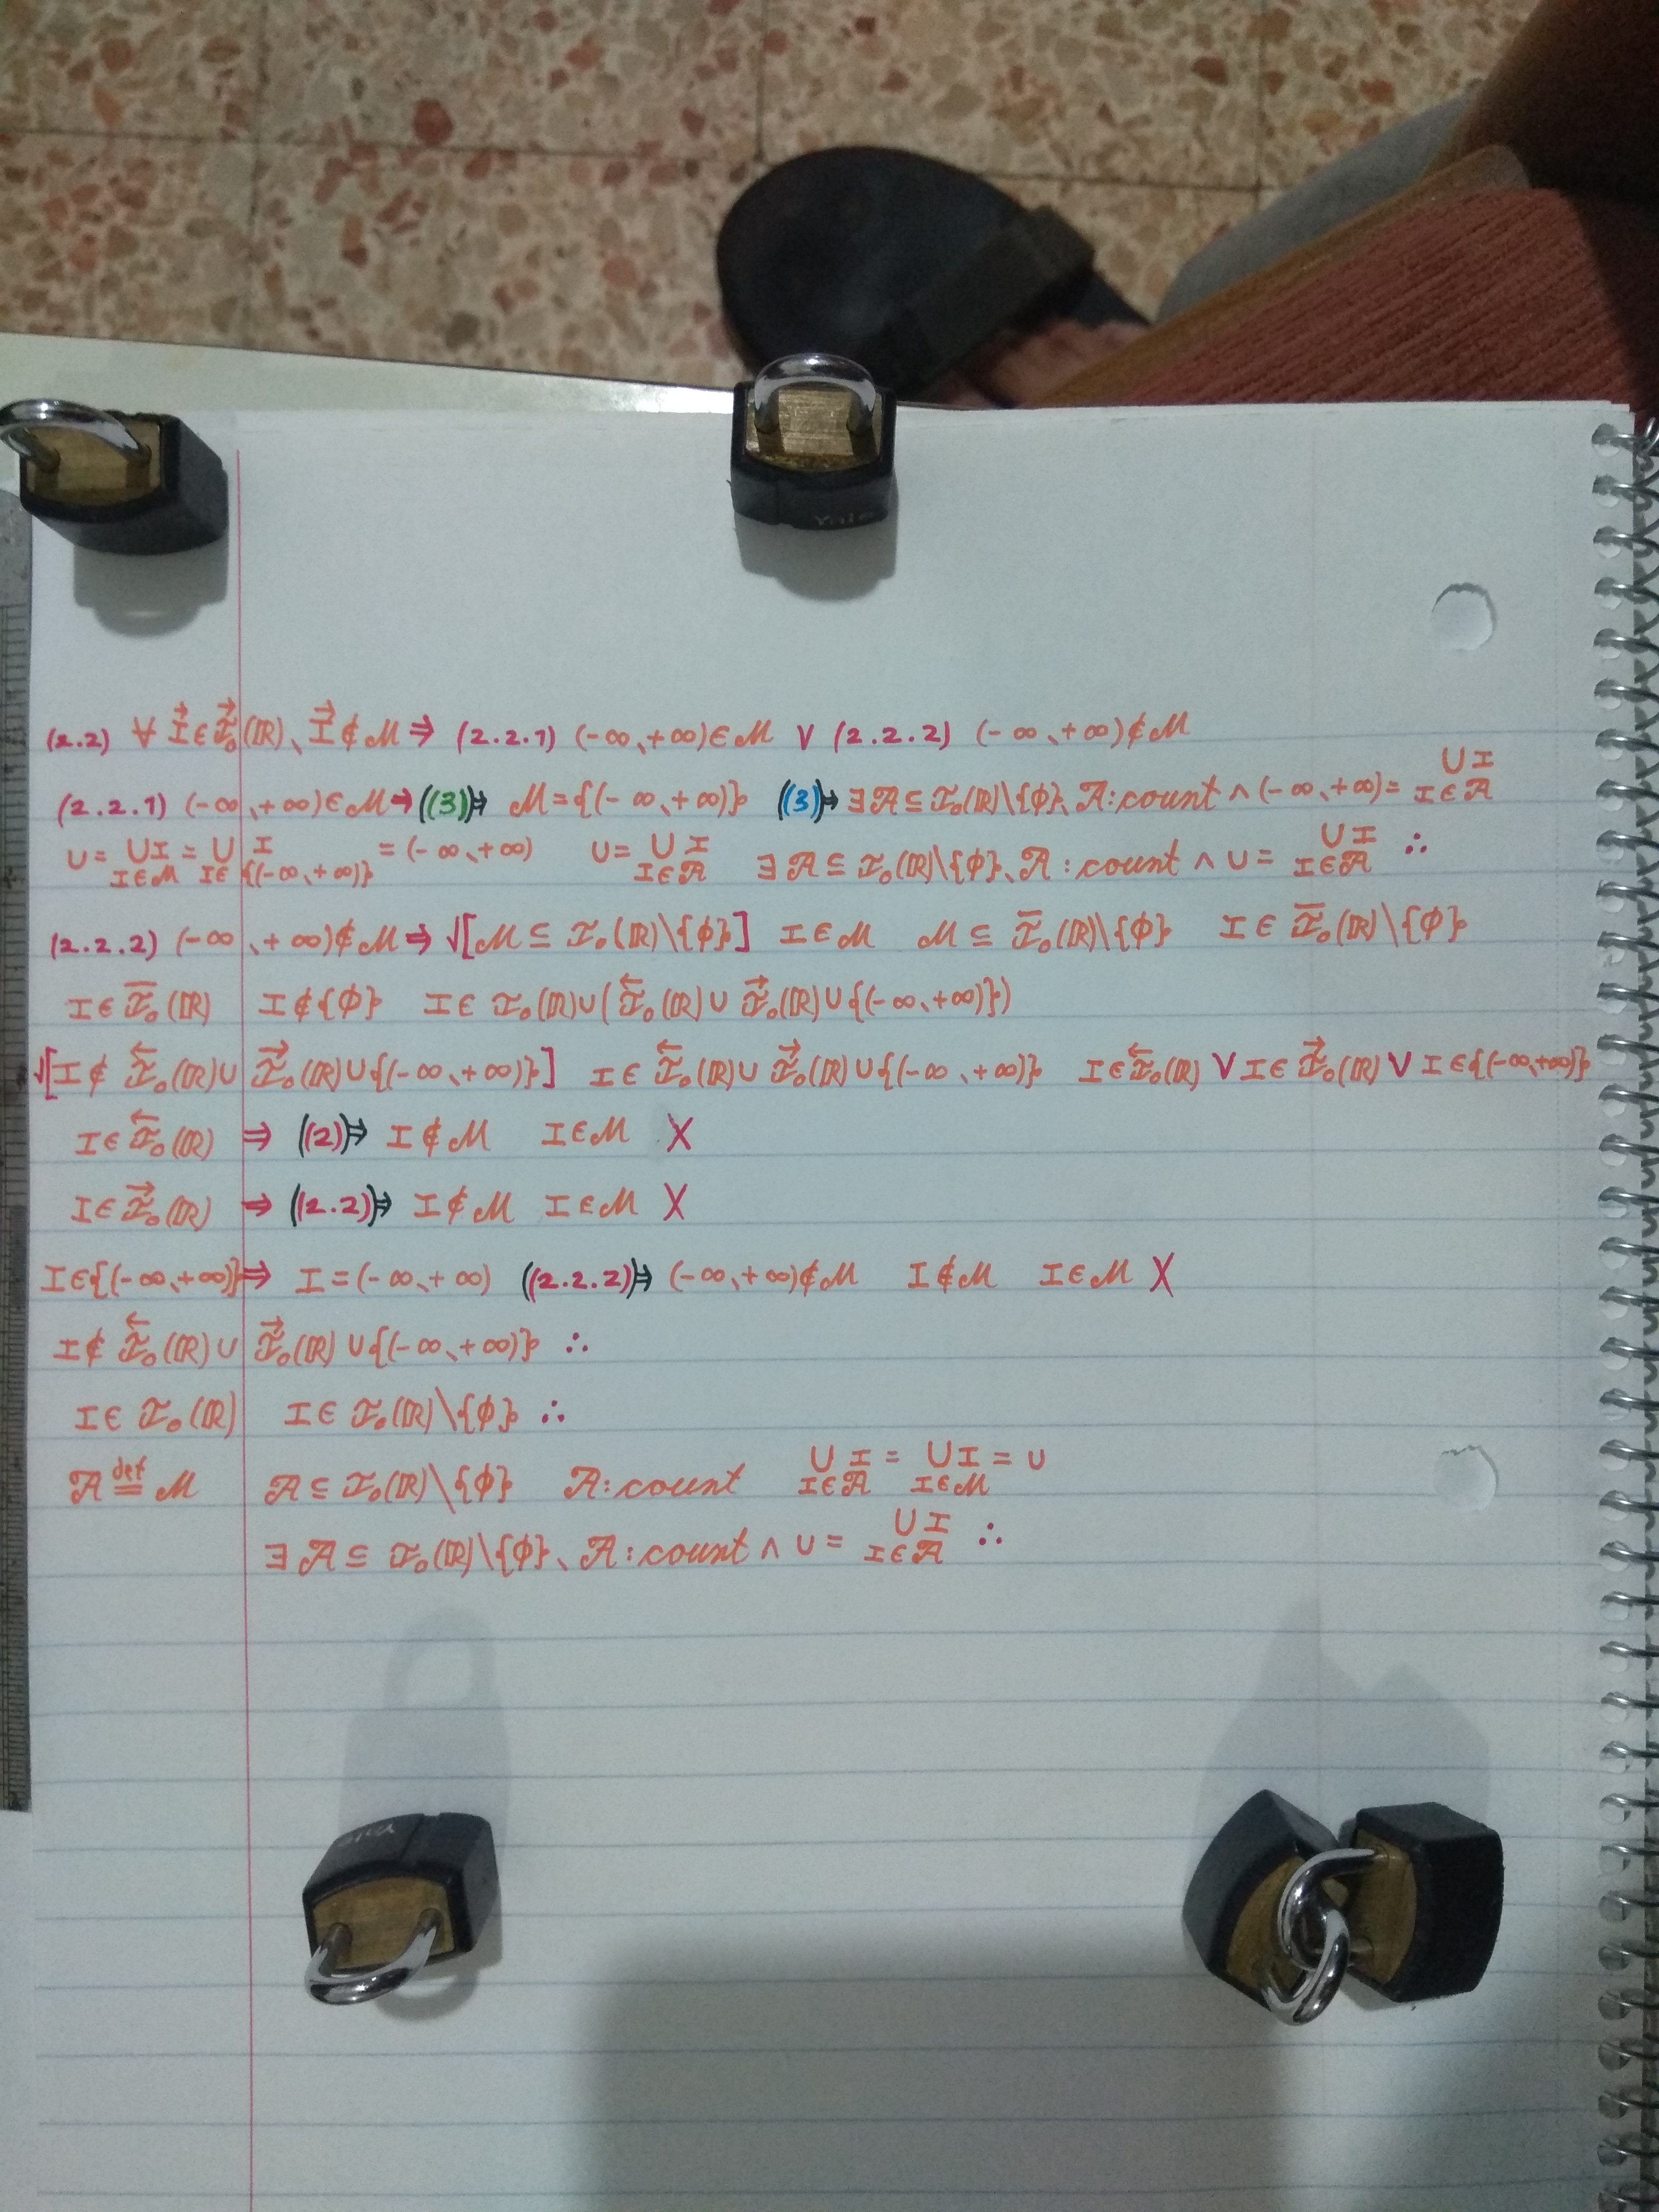 Yale
(2.2) ∀ I⃗ ∈ ℐ⃗₀(ℝ)、I⃗ ∉ ℳ ⇒ (2.2.1) (-∞、+∞) ∈ ℳ ∨ (2.2.2) (-∞、+∞) ∉ ℳ
(2.2.1) (-∞、+∞) ∈ ℳ ⇒ ((3))⇒ ℳ = {(-∞、+∞)} ((3))⇒ ∃ 𝒜 ⊆ ℐ₀(ℝ)\{ϕ}、𝒜 : count ∧ (-∞、+∞) = ∪ I I∈𝒜
U = ∪ I I∈ℳ = ∪ I I∈{(-∞、+∞)} = (-∞、+∞) U = ∪ I I∈𝒜 ∃ 𝒜 ⊆ ℐ₀(ℝ)\{ϕ}、𝒜 : count ∧ U = ∪ I I∈𝒜 ∴
(2.2.2) (-∞、+∞) ∉ ℳ ⇒ √[ℳ ⊆ ℐ₀(ℝ)\{ϕ}] I ∈ ℳ ℳ ⊆ ℐ̅₀(ℝ)\{ϕ} I ∈ ℐ̅₀(ℝ)\{ϕ}
I ∈ ℐ̅₀(ℝ) I ∉ {ϕ} I ∈ ℐ₀(ℝ) ∪ (ℐ⃖₀(ℝ) ∪ ℐ⃗₀(ℝ) ∪ {(-∞、+∞)})
√[I ∉ ℐ⃖₀(ℝ) ∪ ℐ⃗₀(ℝ) ∪ {(-∞、+∞)}] I ∈ ℐ⃖₀(ℝ) ∪ ℐ⃗₀(ℝ) ∪ {(-∞、+∞)} I ∈ ℐ⃖₀(ℝ) ∨ I ∈ ℐ⃗₀(ℝ) ∨ I ∈ {(-∞、+∞)}
I ∈ ℐ⃖₀(ℝ) ⇒ ((2))⇒ I ∉ ℳ I ∈ ℳ X
I ∈ ℐ⃗₀(ℝ) ⇒ ((2.2))⇒ I ∉ ℳ I ∈ ℳ X
I ∈ {(-∞、+∞)} ⇒ I = (-∞、+∞) ((2.2.2))⇒ (-∞、+∞) ∉ ℳ I ∉ ℳ I ∈ ℳ X
I ∉ ℐ⃖₀(ℝ) ∪ ℐ⃗₀(ℝ) ∪ {(-∞、+∞)} ∴
I ∈ ℐ₀(ℝ) I ∈ ℐ₀(ℝ)\{ϕ} ∴
𝒜 def= ℳ 𝒜 ⊆ ℐ₀(ℝ)\{ϕ} 𝒜 : count ∪ I I∈𝒜 = ∪ I I∈ℳ = U
∃ 𝒜 ⊆ ℐ₀(ℝ)\{ϕ}、𝒜 : count ∧ U = ∪ I I∈𝒜 ∴
Yale